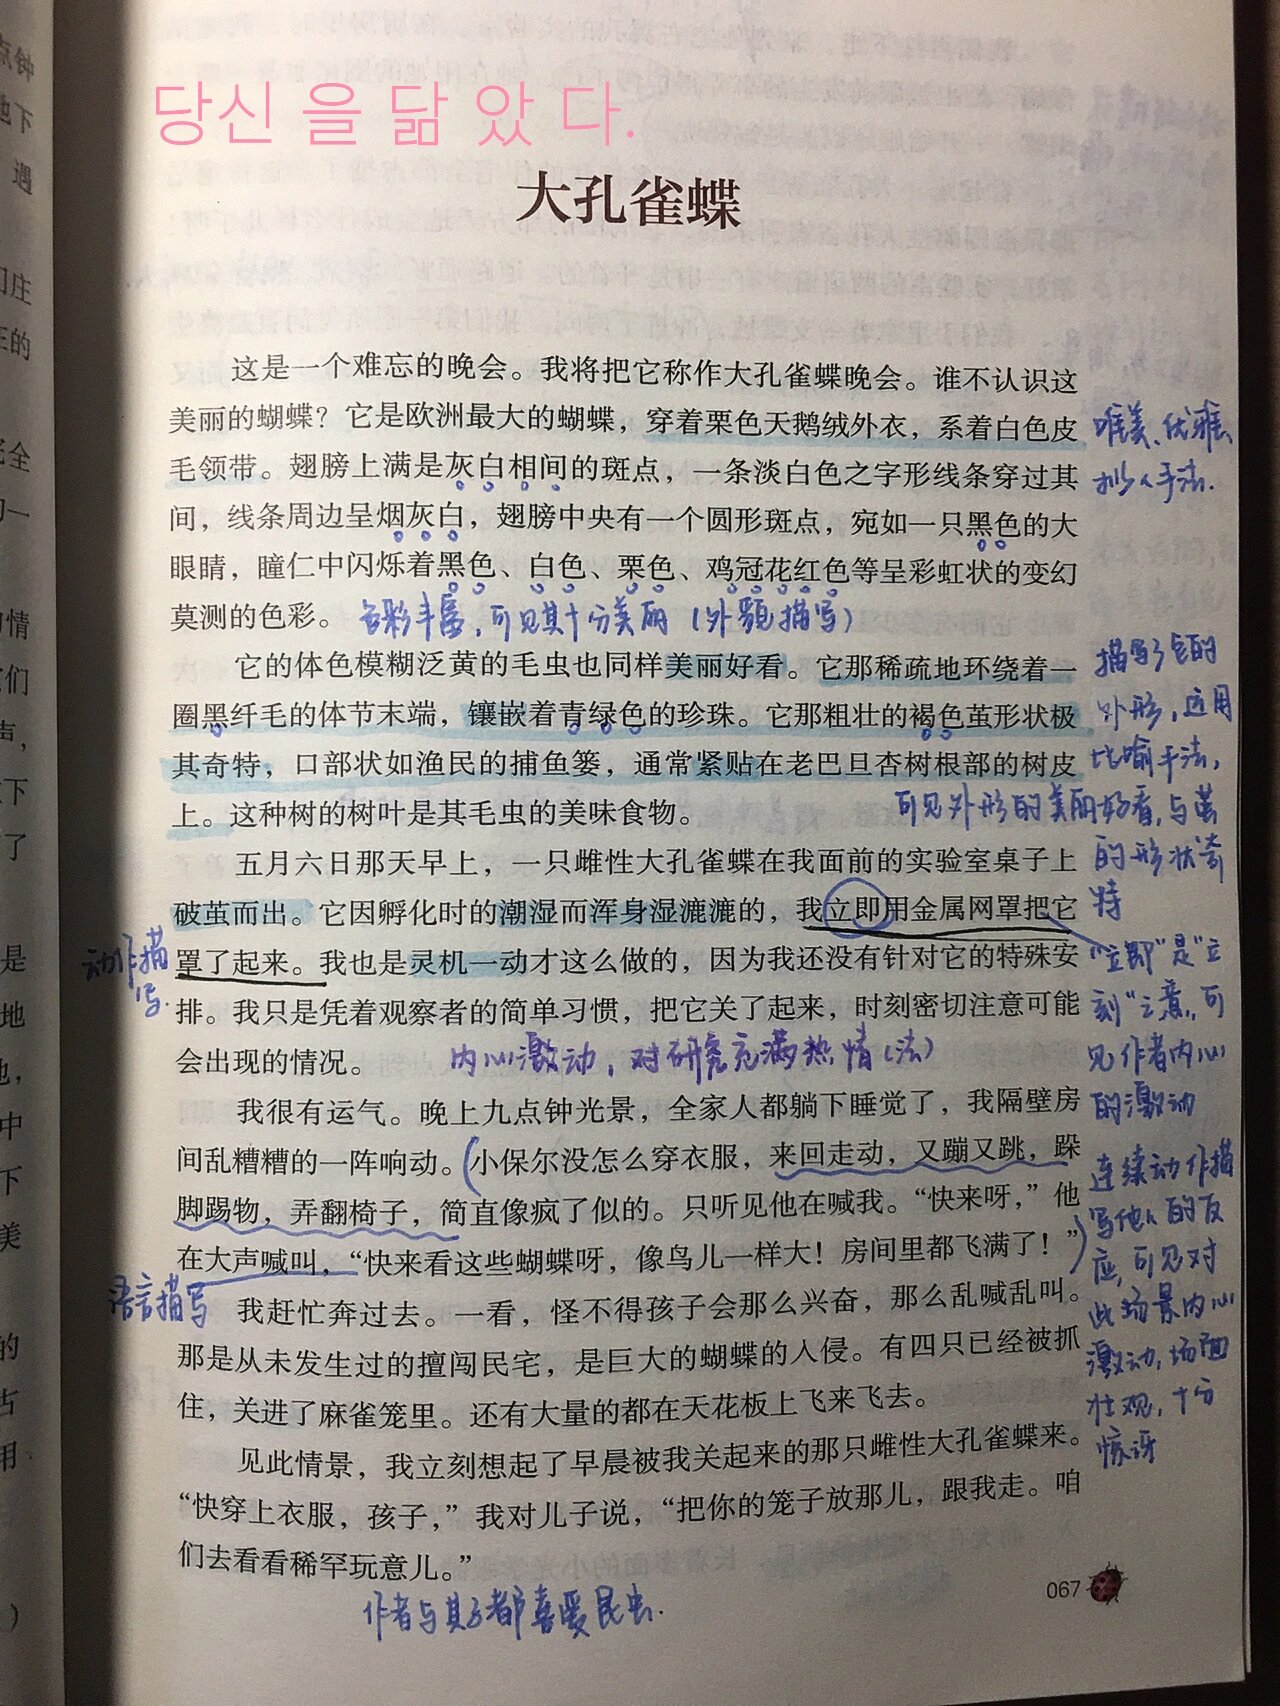 당신 을 닮 았 다.
大孔雀蝶
这是一个难忘的晚会。我将把它称作大孔雀蝶晚会。谁不认识这
美丽的蝴蝶？它是欧洲最大的蝴蝶，穿着栗色天鹅绒外衣，系着白色皮
毛领带。翅膀上满是灰白相间的斑点，一条淡白色之字形线条穿过其
间，线条周边呈烟灰白，翅膀中央有一个圆形斑点，宛如一只黑色的大
眼睛，瞳仁中闪烁着黑色、白色、栗色、鸡冠花红色等呈彩虹状的变幻
莫测的色彩。
色彩丰富，可见其十分美丽（外貌描写）
唯美、优雅、
拟人手法.
它的体色模糊泛黄的毛虫也同样美丽好看。它那稀疏地环绕着一
圈黑纤毛的体节末端，镶嵌着青绿色的珍珠。它那粗壮的褐色茧形状极
其奇特，口部状如渔民的捕鱼篓，通常紧贴在老巴旦杏树根部的树皮
上。这种树的树叶是其毛虫的美味食物。
描写了它的
外形，运用
比喻手法，
可见外形的美丽好看，与茧
的形状奇
特
五月六日那天早上，一只雌性大孔雀蝶在我面前的实验室桌子上
破茧而出。它因孵化时的潮湿而浑身湿漉漉的，我立即用金属网罩把它
罩了起来。我也是灵机一动才这么做的，因为我还没有针对它的特殊安
排。我只是凭着观察者的简单习惯，把它关了起来，时刻密切注意可能
会出现的情况。
动作描
写.
内心激动，对研究充满热情（法）
"立即"是"立
刻"之意，可
见作者内心
的激动
我很有运气。晚上九点钟光景，全家人都躺下睡觉了，我隔壁房
间乱糟糟的一阵响动。小保尔没怎么穿衣服，来回走动，又蹦又跳，跺
脚踢物，弄翻椅子，简直像疯了似的。只听见他在喊我。“快来呀，”他
在大声喊叫，“快来看这些蝴蝶呀，像鸟儿一样大！房间里都飞满了！”
语言描写
连续动作描
写他人的反
应，可见对
此场景内心
激动，场面
壮观，十分
惊讶
我赶忙奔过去。一看，怪不得孩子会那么兴奋，那么乱喊乱叫。
那是从未发生过的擅闯民宅，是巨大的蝴蝶的入侵。有四只已经被抓
住，关进了麻雀笼里。还有大量的都在天花板上飞来飞去。
见此情景，我立刻想起了早晨被我关起来的那只雌性大孔雀蝶来。
“快穿上衣服，孩子，”我对儿子说，“把你的笼子放那儿，跟我走。咱
们去看看稀罕玩意儿。”
作者与其子都喜爱昆虫.
067